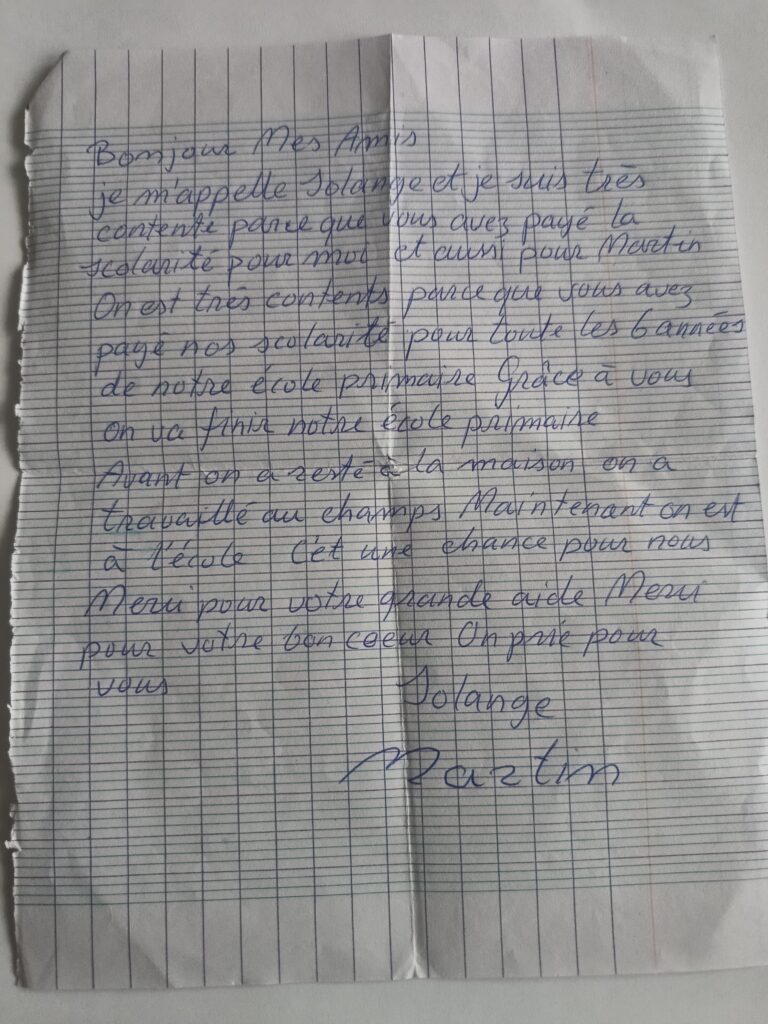 Bonjour Mes Amis
je m'appelle Solange et je suis très
contente parce que vous avez payé la
scolarité pour moi et aussi pour Martin
On est très contents parce que vous avez
payé nos scolarité pour toute les 6 années
de notre école primaire Grâce à vous
on va finir notre école primaire
Avant on a resté à la maison on a
travaillé au champs Maintenant on est
à l'école C'ét une chance pour nous
Merci pour votre grande aide Merci
pour votre bon coeur On prie pour
vous
Solange
Martin